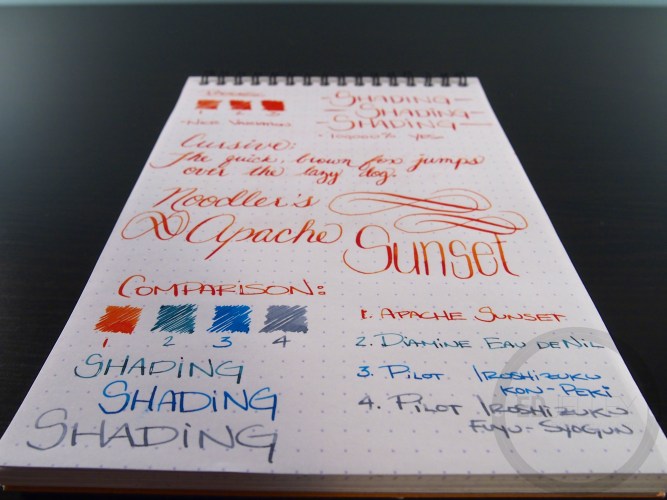 1 2 3
SHADING
SHADING
SHADING
Cursive:
The quick, brown fox jumps
over the lazy dog.
Noodler's
Apache
Sunset
COMPARISON:
1 2 3 4
SHADING
SHADING
SHADING
1. APACHE SUNSET
2. DIAMINE EAU DE NIL
3. PILOT IROSHIZUKU
KON-PEKI
4. PILOT IROSHIZUKU
FUYU-SYOGUN